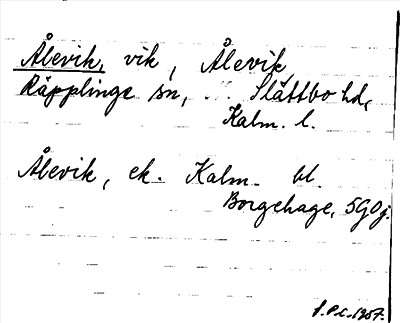 Ålevik, vik, Ålevik,
Räpplinge sn, Slättbo hd,
Kalm. l.
Ålevik, ek. Kalm. bl.
Borgehage, 5G0j.
1957.